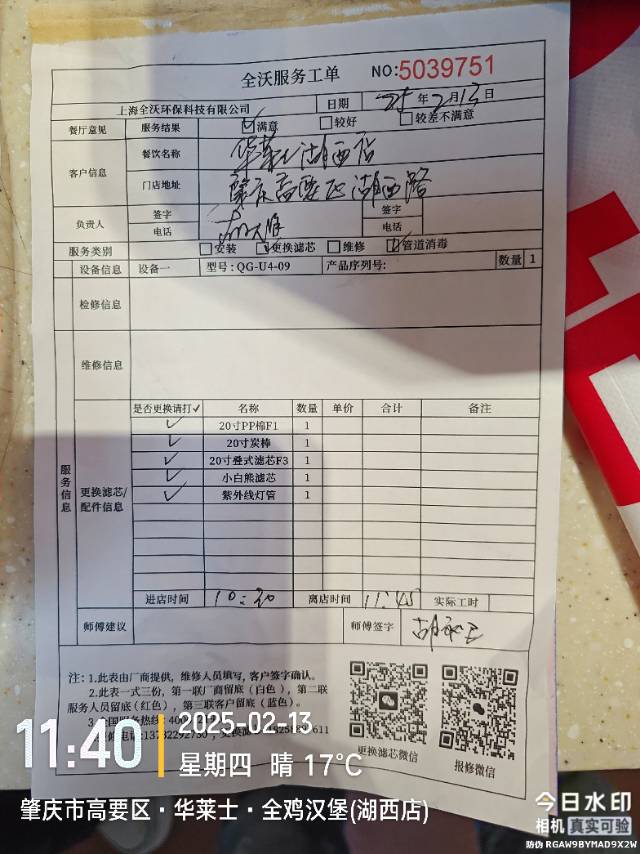 全沃服务工单
NO:5039751
上海全沃环保科技有限公司 日期 25年2月13日
餐厅意见 服务结果 ☑满意 □较好 □较差不满意
客户信息 餐饮名称 华莱士湖西店
门店地址 肇庆高要区湖西路
负责人 签字 签字
电话 电话
服务类别 □安装 ☑更换滤芯 □维修 ☑管道消毒
设备信息 设备一 型号:QG-U4-09 产品序列号: 数量 1
检修信息
维修信息
服务信息
更换滤芯/配件信息
是否更换请打✓ 名称 数量 单价 合计 备注
✓ 20寸PP棉F1 1
✓ 20寸炭棒 1
✓ 20寸叠式滤芯F3 1
✓ 小白熊滤芯 1
✓ 紫外线灯管 1
进店时间 10:30 离店时间 11:45 实际工时
师傅建议 师傅签字
注:1.此表由厂商提供,维修人员填写,客户签字确认。
2.此表一式三份,第一联厂商留底(白色),第二联
服务人员留底(红色),第三联客户留底(蓝色)。
更换滤芯微信
报修微信
11:40
2025-02-13
星期四 晴 17℃
肇庆市高要区·华莱士·全鸡汉堡(湖西店)
今日水印
相机 真实可验
防伪 RGAW9BYMAD9X2W